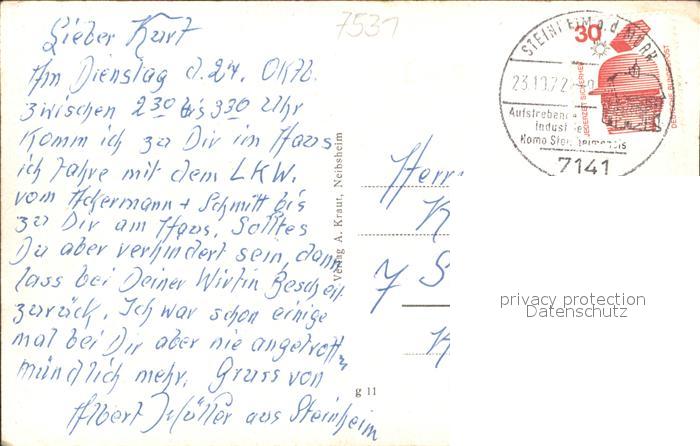 7531
Lieber Kurt
Am Dienstag d. 24. Oktb.
zwischen 2 30 bis 3 30 Uhr
Komm ich zu Dir im Haus
ich fahre mit dem LKW.
vom Ackermann + Schmitt bis
zu Dir am Haus. Solltes
Du aber verhindert sein, dann
lass bei Deiner Wirtin Bescheit
zurück. Ich war schon einige
mal bei Dir aber nie angetroffn
mündlich mehr. Gruss von
Albert Müller aus Steinheim
Verlag A. Kraut, Neibsheim
g 11
STEINHEIM a. d. MURR
23.10.72
Aufstrebende
Industrie
Homo Steinheimensis
7141
30
JEDERZEIT SICHERHEIT
DEUTSCHE BUNDESPOST
Herr
K
7 S
K
privacy protection
Datenschutz